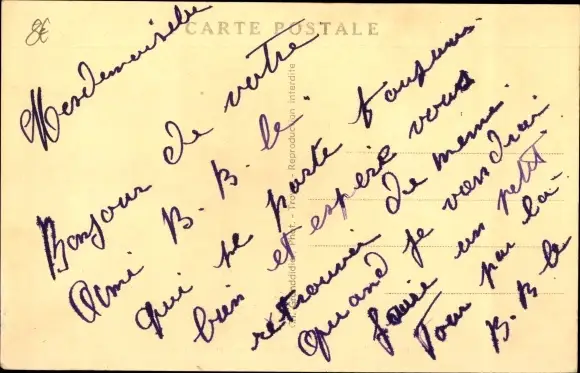 8€
CARTE POSTALE
Mesdemoiselle
Bonjour de votre
Ami B. B. le.
qui se porte toujours
bien et espère vous
retrouver de meme.
Quand je vendrai
faire un petit
Tour par là-
B. B le
Reproduction interdite